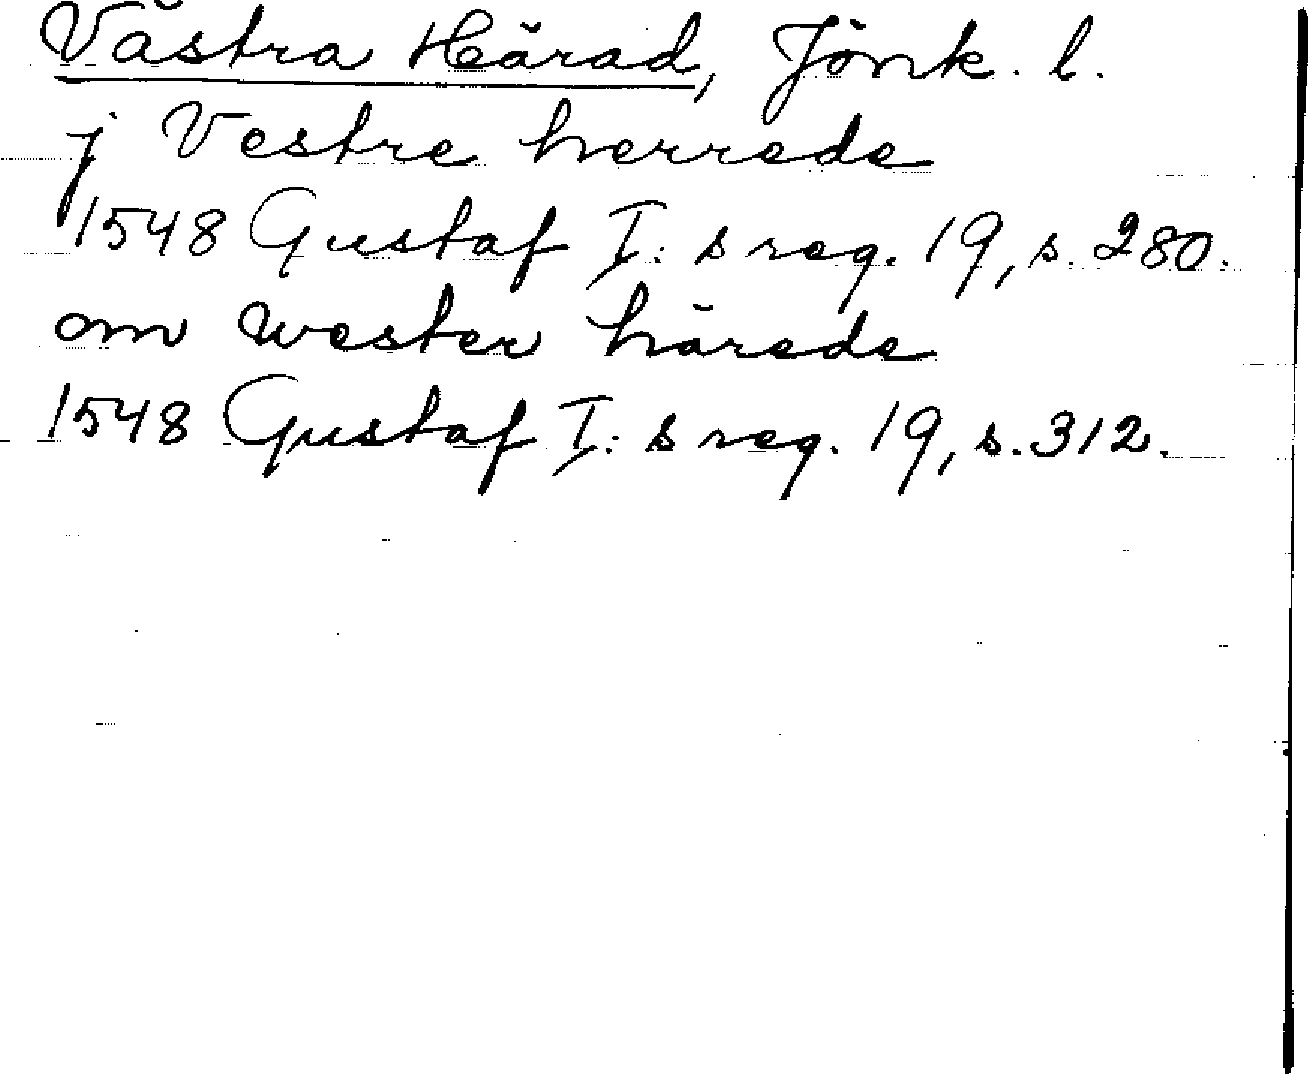 Västra Härad, Jönk. l.
j Vestre herrede
1548 Gustaf I: s reg. 19, s. 280.
om wester härede
1548 Gustaf I: s reg. 19, s. 312.